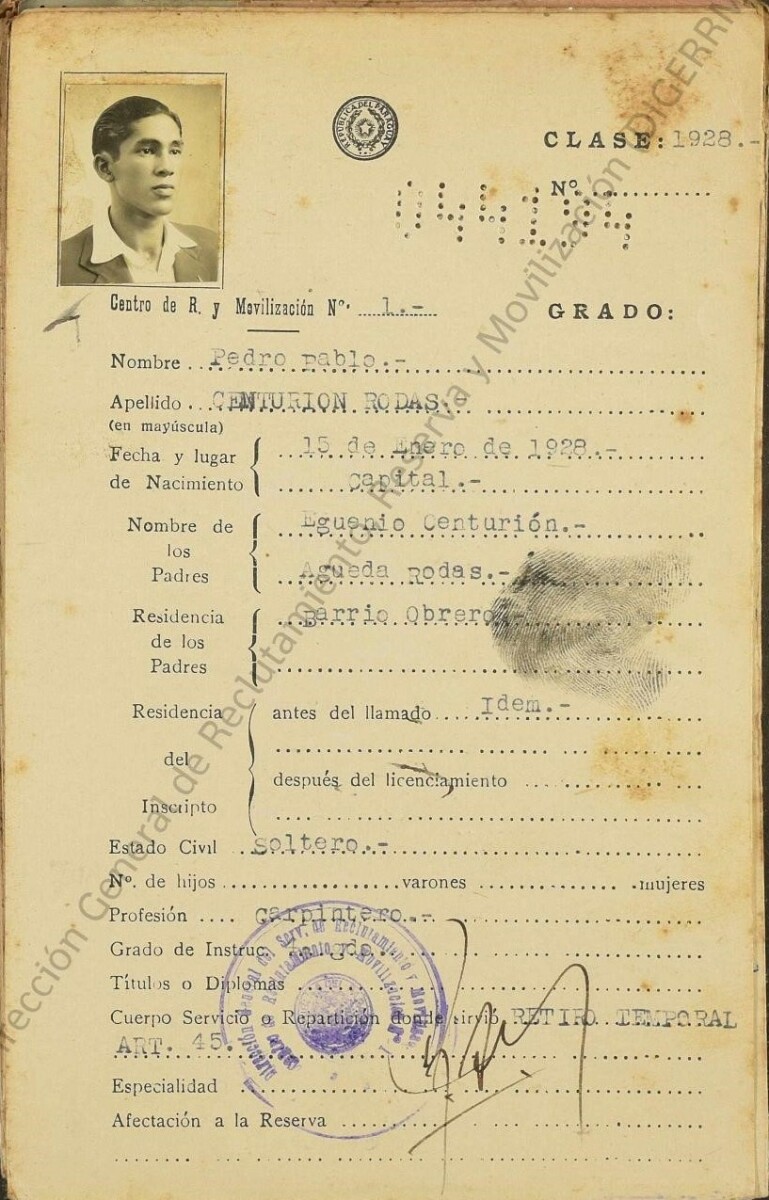 REPUBLICA DEL PARAGUAY
CLASE: 1928.-
Nº.
044194
Centro de R. y Movilización Nº. 1.-
GRADO:
Nombre Pedro Pablo.-
Apellido CENTURION RODAS.-
(en mayúscula)
Fecha y lugar de Nacimiento 15 de Enero de 1928.-
Capital.-
Nombre de los Padres Eguenio Centurión.-
Agueda Rodas.-
Residencia de los Padres Barrio Obrero.
Residencia del Inscripto antes del llamado Idem.-
después del licenciamiento
Estado Civil Soltero.-
Nº. de hijos varones mujeres
Profesión Carpintero.-
Grado de Instruc.
Títulos o Diplomas
Cuerpo Servicio o Repartición donde sirvió RETIRO TEMPORAL
ART. 45.
Especialidad
Afectación a la Reserva
Dirección General de Reclutamiento, Reserva y Movilización DIGERRM